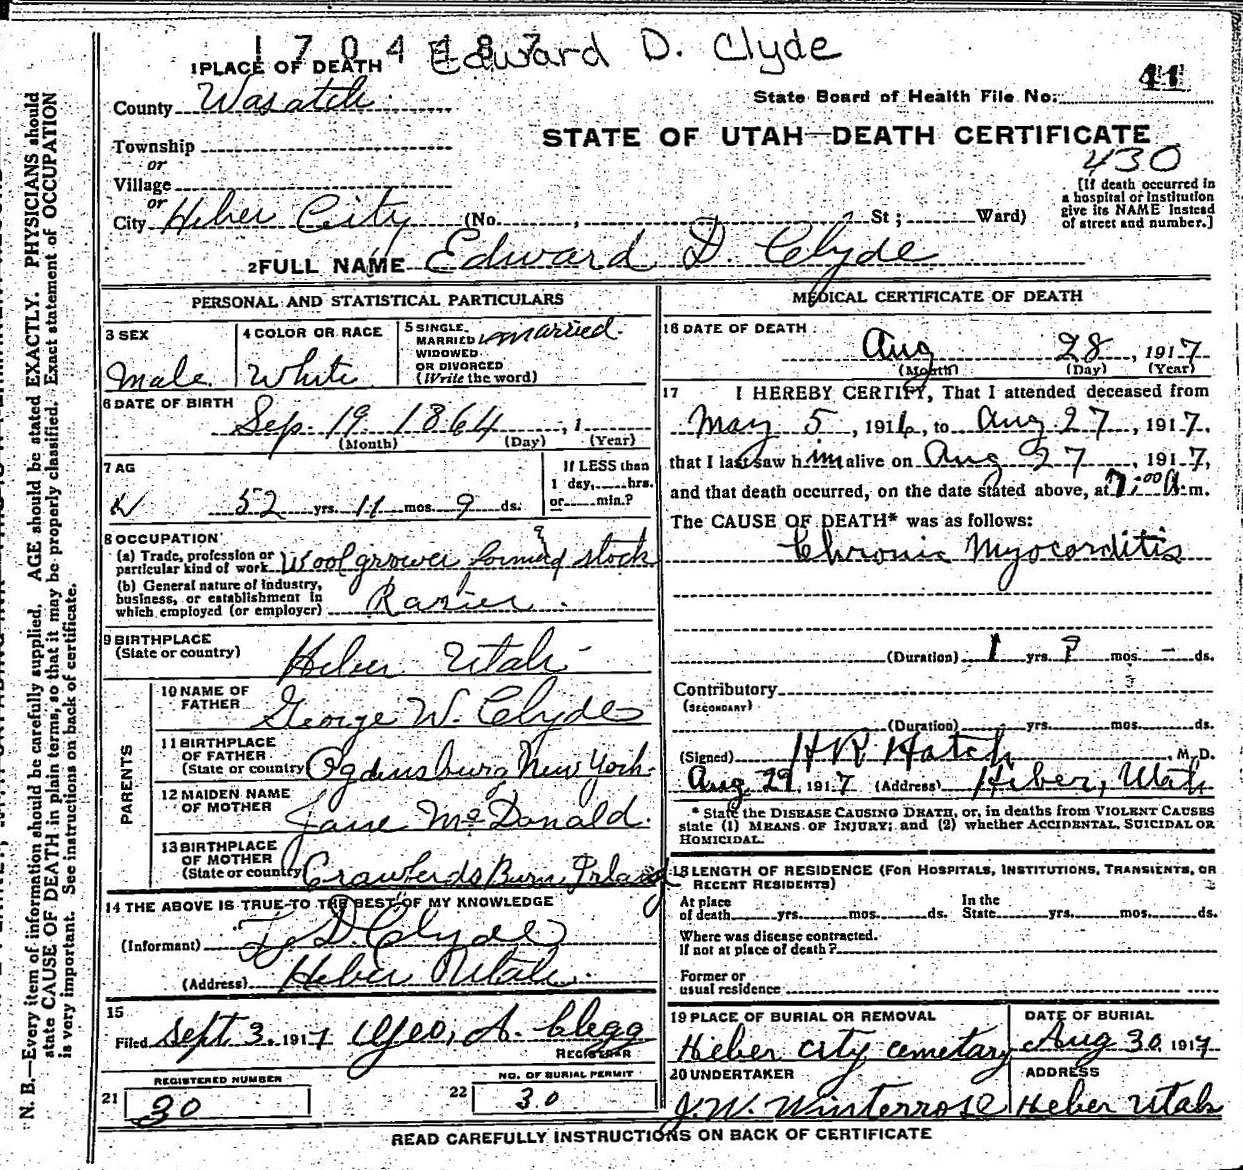 1704487
Edward D. Clyde
1 PLACE OF DEATH
41
County Wasatch
State Board of Health File No.
STATE OF UTAH—DEATH CERTIFICATE
Township
430
or
Village
or
City Heber City (No. , St; Ward)
[If death occurred in
a hospital or institution
give its NAME instead
of street and number.]
2 FULL NAME Edward D. Clyde
PERSONAL AND STATISTICAL PARTICULARS
3 SEX
Male
4 COLOR OR RACE
White
5 SINGLE
MARRIED
WIDOWED
OR DIVORCED
(Write the word)
married.
6 DATE OF BIRTH
Sep. 19. 1864 , 1
(Month) (Day) (Year)
7 AG
52 yrs. 11 mos. 9 ds.
If LESS than
1 day, hrs.
or min.?
8 OCCUPATION
(a) Trade, profession or
particular kind of work Wool grower stock
(b) General nature of industry,
business, or establishment in
which employed (or employer)
9 BIRTHPLACE
(State or country)
Heber Utah
PARENTS
10 NAME OF
FATHER
George W. Clyde
11 BIRTHPLACE
OF FATHER
(State or country) Ogdensburg New York.
12 MAIDEN NAME
OF MOTHER
Jane McDonald.
13 BIRTHPLACE
OF MOTHER
(State or country) Crawferds Burn Irland
14 THE ABOVE IS TRUE TO THE BEST OF MY KNOWLEDGE
(Informant) D. Clyde
(Address) Heber Utah.
15
Filed Sept 3. 1917 Geo, A. Clegg
REGISTRAR
REGISTERED NUMBER
21 30
NO. OF BURIAL PERMIT
22 30
MEDICAL CERTIFICATE OF DEATH
16 DATE OF DEATH
Aug 28, 1917
(Month) (Day) (Year)
17 I HEREBY CERTIFY, That I attended deceased from
May 5, 1916, to Aug 27, 1917.
that I last saw him alive on Aug 27, 1917,
and that death occurred, on the date stated above, at 7:00 A.m.
The CAUSE OF DEATH* was as follows:
Chronic Myocorditis
(Duration) 1 yrs. 9 mos. - ds.
Contributory
(SECONDARY)
(Duration) yrs. mos. ds.
(Signed) HR Hatch M.D.
Aug 29, 1917 (Address) Heber, Utah
* State the DISEASE CAUSING DEATH, or, in deaths from VIOLENT CAUSES
state (1) MEANS OF INJURY; and (2) whether ACCIDENTAL, SUICIDAL OR
HOMICIDAL.
18 LENGTH OF RESIDENCE (FOR HOSPITALS, INSTITUTIONS, TRANSIENTS, OR
RECENT RESIDENTS)
At place
of death yrs. mos. ds.
In the
State yrs. mos. ds.
Where was disease contracted.
If not at place of death?
Former or
usual residence
19 PLACE OF BURIAL OR REMOVAL
Heber City cemetary
DATE OF BURIAL
Aug 30, 1917
20 UNDERTAKER
J. W. Winterrose
ADDRESS
Heber Utah
READ CAREFULLY INSTRUCTIONS ON BACK OF CERTIFICATE
N. B.—Every item of information should be carefully supplied. AGE should be stated EXACTLY. PHYSICIANS should
state CAUSE OF DEATH in plain terms, so that it may be properly classified. Exact statement of OCCUPATION
is very important. See instructions on back of certificate.